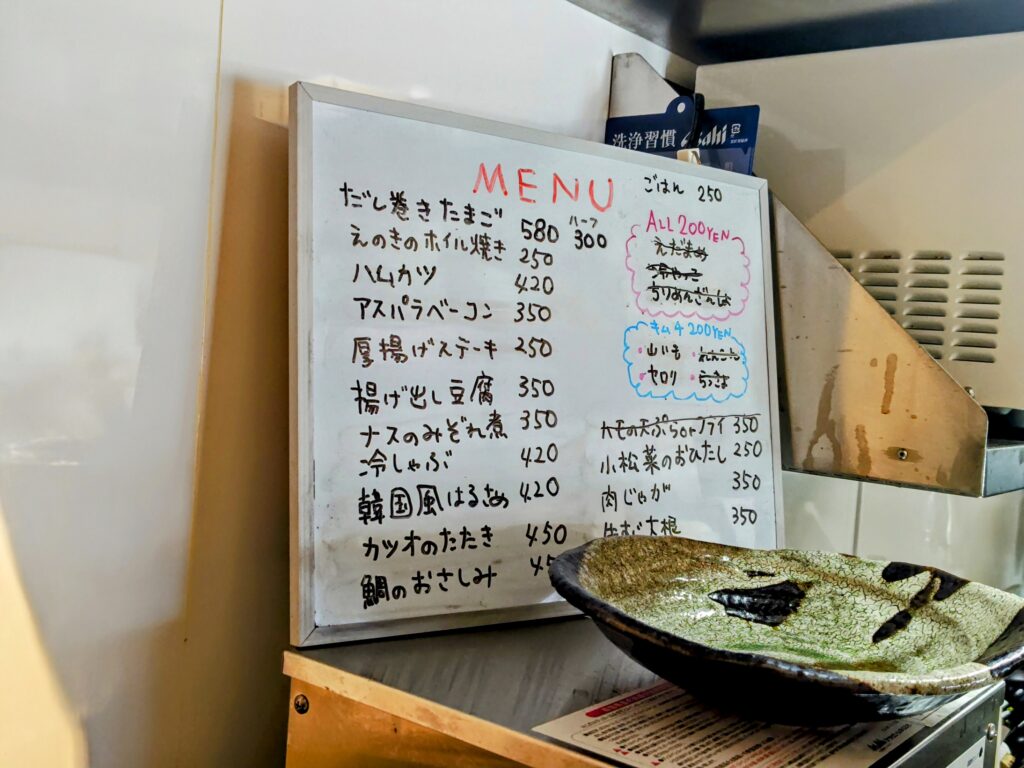 洗浄習慣
Asahi
MENU
だし巻きたまご 580 ハーフ 300
えのきのホイル焼き 250
ハムカツ 420
アスパラベーコン 350
厚揚げステーキ 250
揚げ出し豆腐 350
ナスのみぞれ煮 350
冷しゃぶ 420
韓国風はるさめ 420
カツオのたたき 450
鯛のおさしみ
ごはん 250
ALL 200YEN
えだまめ
冷やっこ
ちりめんざんしょ
キムチ 200YEN
・山いも
・セロリ
ハモの天ぷらorフライ 350
小松菜のおひたし 250
肉じゃが 350
大根 350